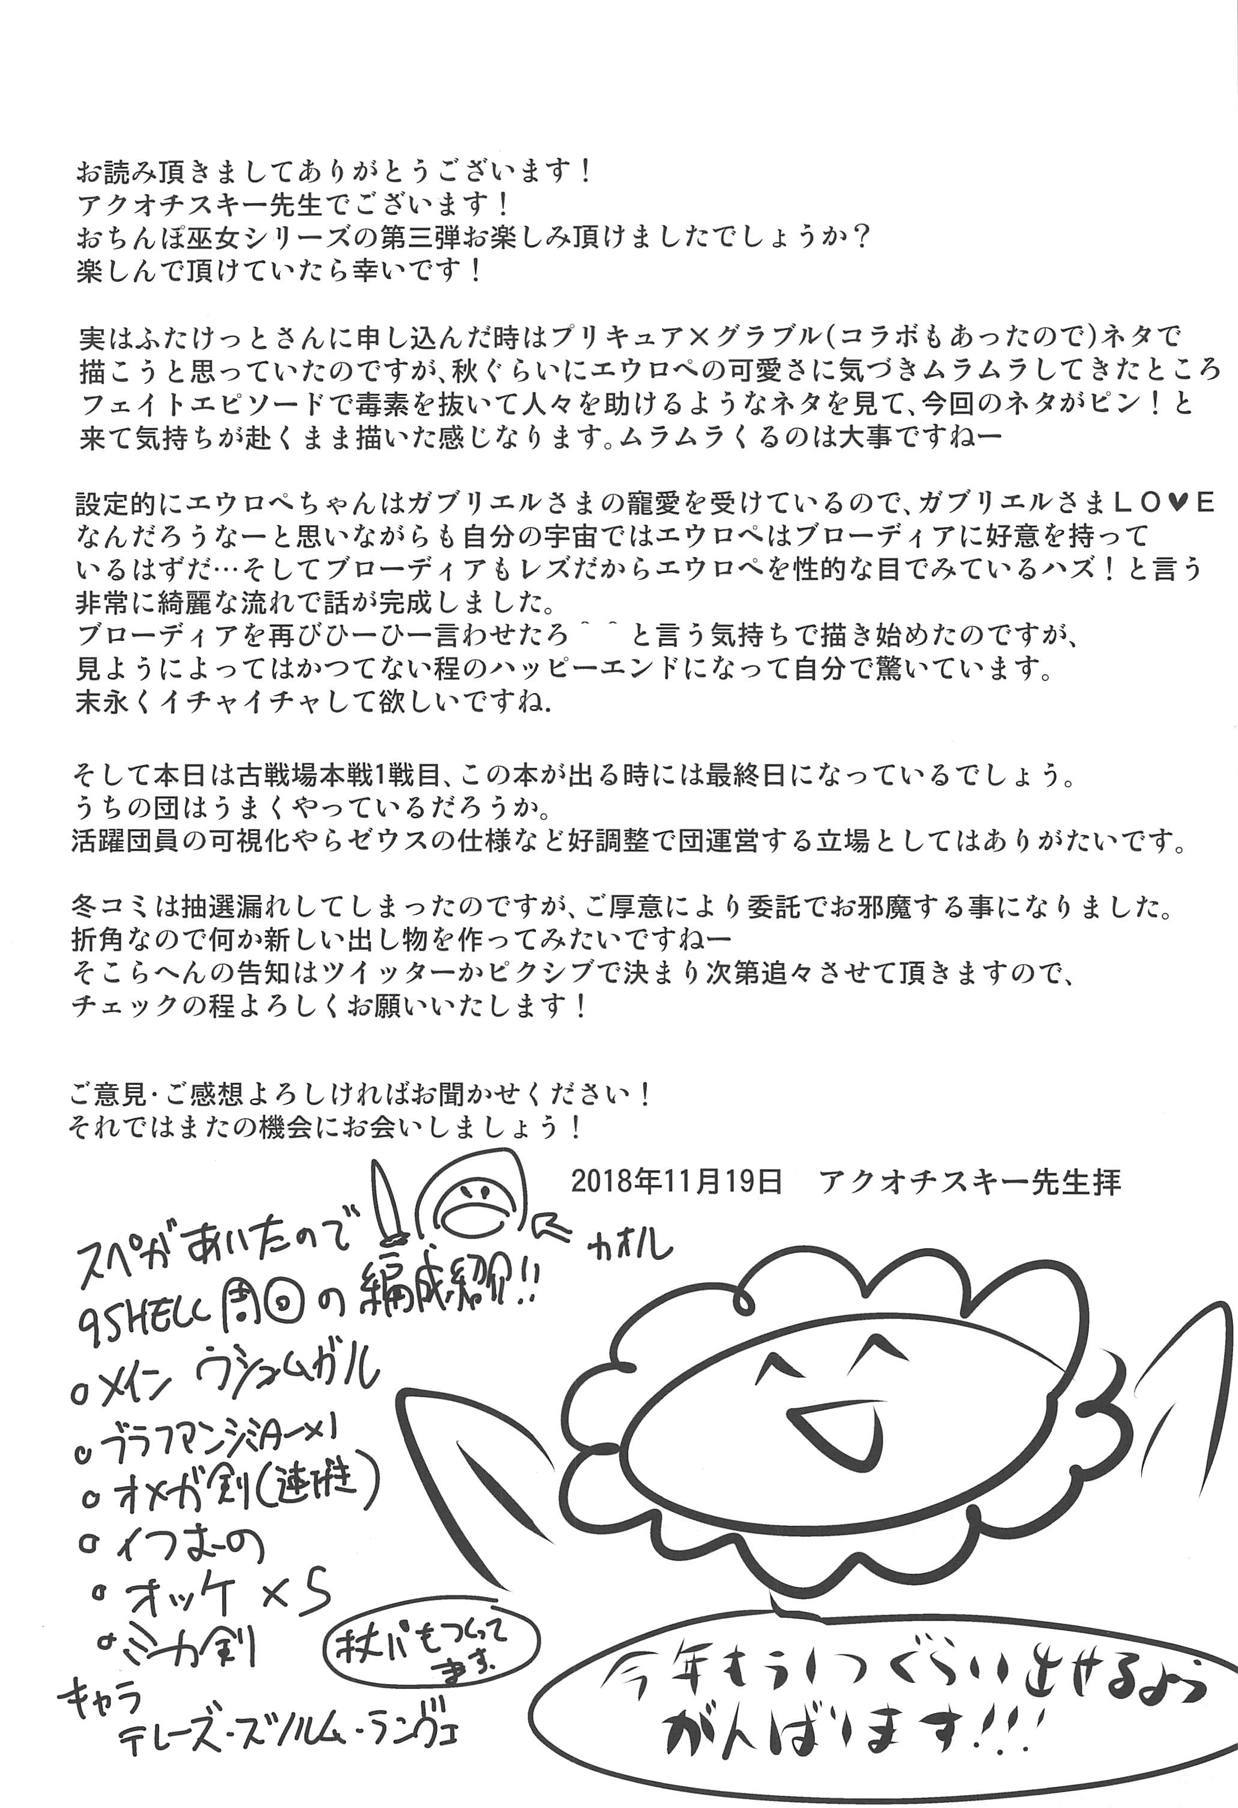 お読み頂きましてありがとうございます！
アクオチスキー先生でございます！
おちんぽ巫女シリーズの第三弾お楽しみ頂けましたでしょうか？
楽しんで頂けていたら幸いです！
実はふたけっとさんに申し込んだ時はプリキュア×グラブル(コラボもあったので)ネタで
描こうと思っていたのですが、秋ぐらいにエウロペの可愛さに気づきムラムラしてきたところ
フェイトエピソードで毒素を抜いて人々を助けるようなネタを見て、今回のネタがピン！と
来て気持ちが赴くまま描いた感じなります。ムラムラくるのは大事ですねー
設定的にエウロペちゃんはガブリエルさまの寵愛を受けているので、ガブリエルさまＬＯ♥Ｅ
なんだろうなーと思いながらも自分の宇宙ではエウロペはブローディアに好意を持って
いるはずだ…そしてブローディアもレズだからエウロペを性的な目でみているハズ！と言う
非常に綺麗な流れで話が完成しました。
ブローディアを再びひーひー言わせたろ＾＾と言う気持ちで描き始めたのですが、
見ようによってはかつてない程のハッピーエンドになって自分で驚いています。
末永くイチャイチャして欲しいですね.
そして本日は古戦場本戦1戦目、この本が出る時には最終日になっているでしょう。
うちの団はうまくやっているだろうか。
活躍団員の可視化やらゼウスの仕様など好調整で団運営する立場としてはありがたいです。
冬コミは抽選漏れしてしまったのですが、ご厚意により委託でお邪魔する事になりました。
折角なので何か新しい出し物を作ってみたいですねー
そこらへんの告知はツイッターかピクシブで決まり次第追々させて頂きますので、
チェックの程よろしくお願いいたします！
ご意見・ご感想よろしければお聞かせください！
それではまたの機会にお会いしましょう！
2018年11月19日　アクオチスキー先生拝
カオル
スペがあいたので
95HELL周回の編成紹介!!
○メイン ウシュムガル
○ブラフマンシミター×1
○オメガ剣(連撃)
○イつおーの
○オッケ×5
○ミカ剣
杖パもつくって
ます.
キャラ
テレーズ・ズソルム・ランヴェ
今年もう1つぐらい出せるよう
がんばります!!!